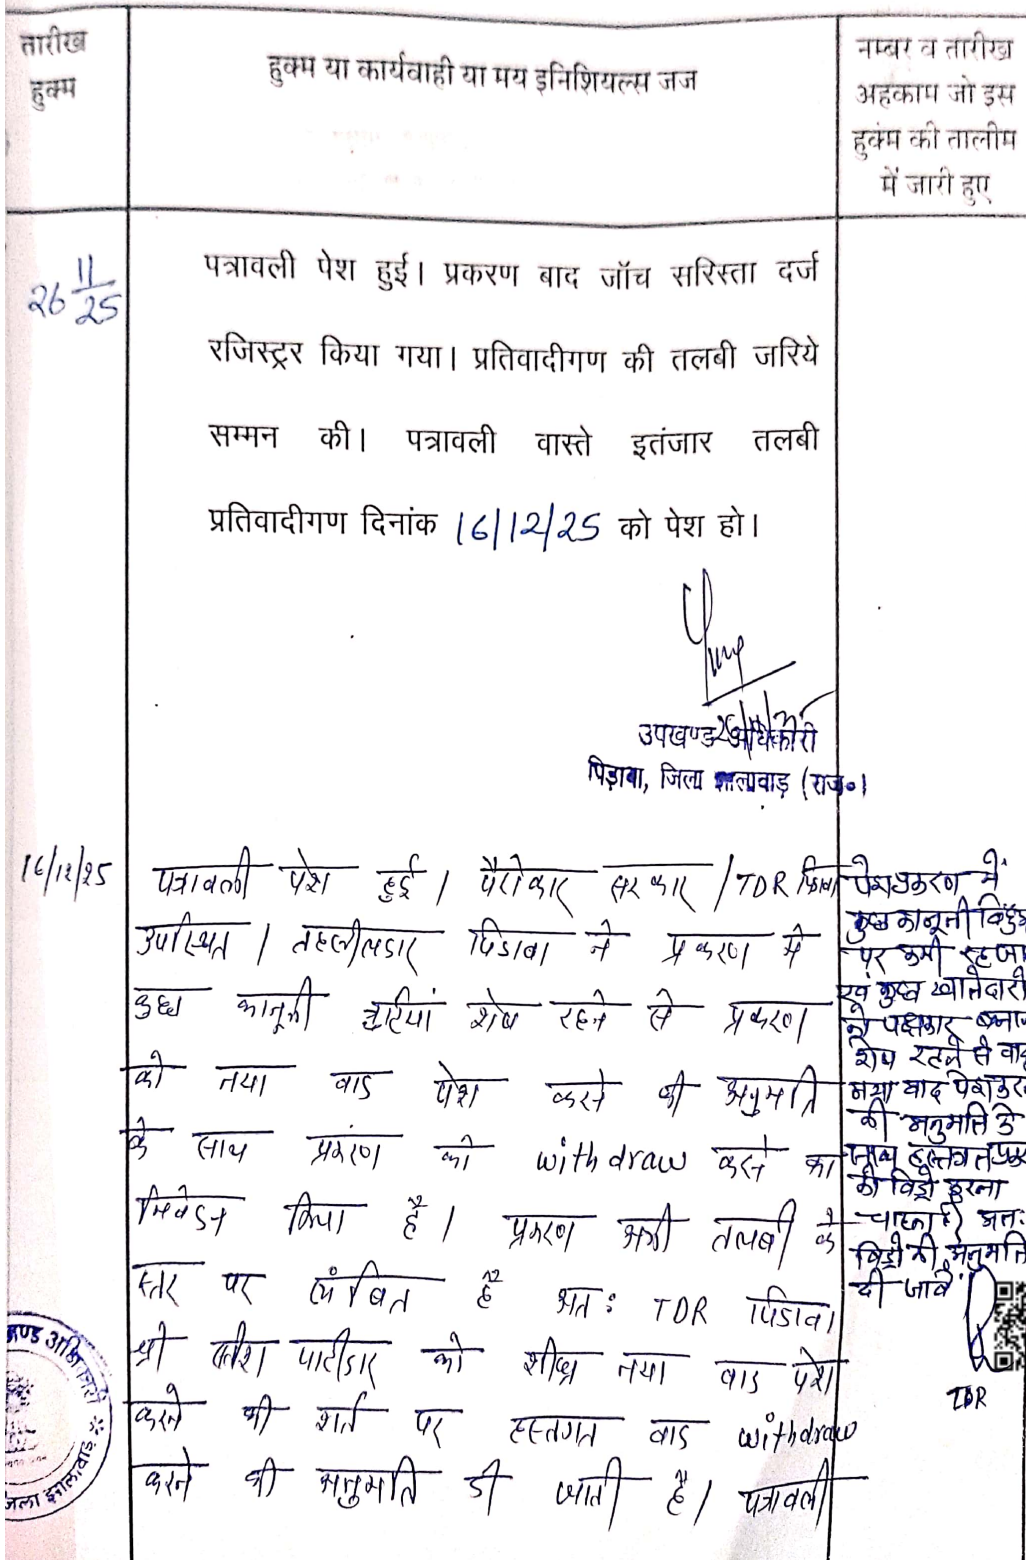 तारीख
हुक्म
हुक्म या कार्यवाही या मय इनिशियल्स जज
नम्बर व तारीख
अहकाम जो इस
हुकंम की तालीम
में जारी हुए
26 11/25
पत्रावली पेश हुई। प्रकरण बाद जॉच सरिस्ता दर्ज
रजिस्ट्रर किया गया। प्रतिवादीगण की तलबी जरिये
सम्मन की। पत्रावली वास्ते इतंजार तलबी
प्रतिवादीगण दिनांक 16/12/25 को पेश हो।
उपखण्ड अधिकारी
पिड़ावा, जिला झालावाड़ (राज०)
16/12/25
पत्रावली पेश हुई। पैरोकार सरकार / TDR पिडावा
उपस्थित। तहसीलदार पिडावा ने प्रकरण मे
कुछ कानूनी त्रुटियां शेष रहने से प्रकरण
को नया वाद पेश करने की अनुमति
के साथ प्रकरण को withdraw करने का
निवेदन किया है। प्रकरण अभी तलबी के
स्तर पर लंबित है अतः TDR पिडावा
श्री पाटीदार को शीघ्र नया वाद पेश
करने की शर्त पर हस्तगत वाद withdraw
करने की अनुमति दी जाती है। पत्रावली
प्रकरण में
कुछ कानूनी
पर कमी रह
एवं कुछ खातेदारो
पक्षकार
शेष रहने से
नया वाद पेश
की अनुमति के
साथ हस्तगत
को विड्रो करना
अतः
विड्रो की अनुमति
दी जावे
TDR